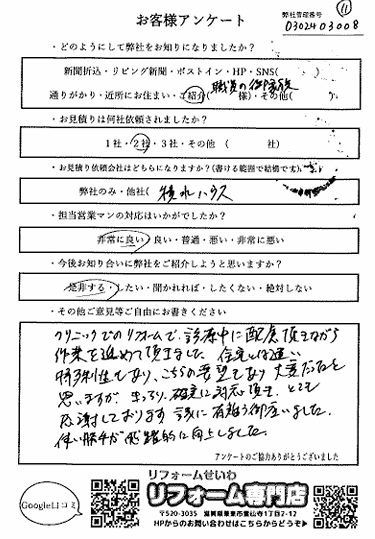 ⑪
お客様アンケート
弊社管理番号
0302403008
・どのようにして弊社をお知りになりましたか?
新聞折込・リビング新聞・ポストイン・HP・SNS(
職員の御家族
通りがかり・近所にお住まい・ご紹介( 様)・その他( )
・お見積りは何社依頼されましたか?
1社・2社・3社・その他( 社)
・お見積り依頼会社はどちらになりますか?(書ける範囲で結構です)
弊社のみ・他社( 積水ハウス
・担当営業マンの対応はいかがでしたか?
非常に良い・良い・普通・悪い・非常に悪い
・今後お知り合いに弊社をご紹介しようと思いますか?
是非する・したい・聞かれれば・したくない・絶対しない
・その他ご意見等ご自由にお書きください
クリニックでのリフォームで、診療中に配慮頂きながら
作業を進めて頂きました。住宅とは違い
特殊性もあり、こちらの要望もあり大変だったと
思いますが、きっちり、確実に対応頂き、とても
感謝しております。誠に有難う御座いました。
使い勝手が飛躍的に向上しました。
アンケートのご協力ありがとうございました
Google口コミ
リフォームせいわ
リフォーム専門店
〒520-3035 滋賀県栗東市霊仙寺1丁目2-12
HPからのお問い合わせはこちらからどうぞ▶